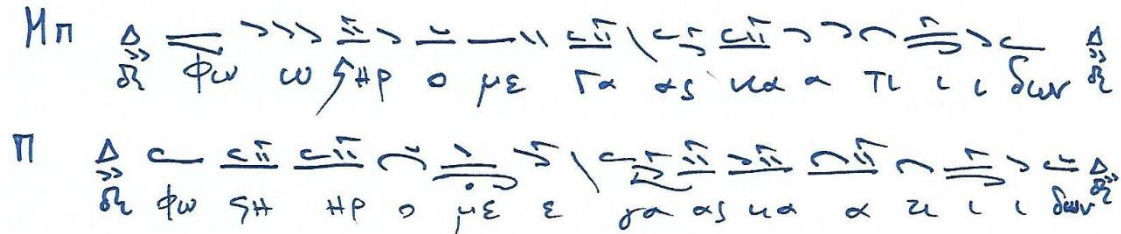 Μπ φω ω ςηρ ο με Γα ας κα α πι ι ι δων
Π φω ςη ηρ ο με ε γα ας κα α πι ι ι δων